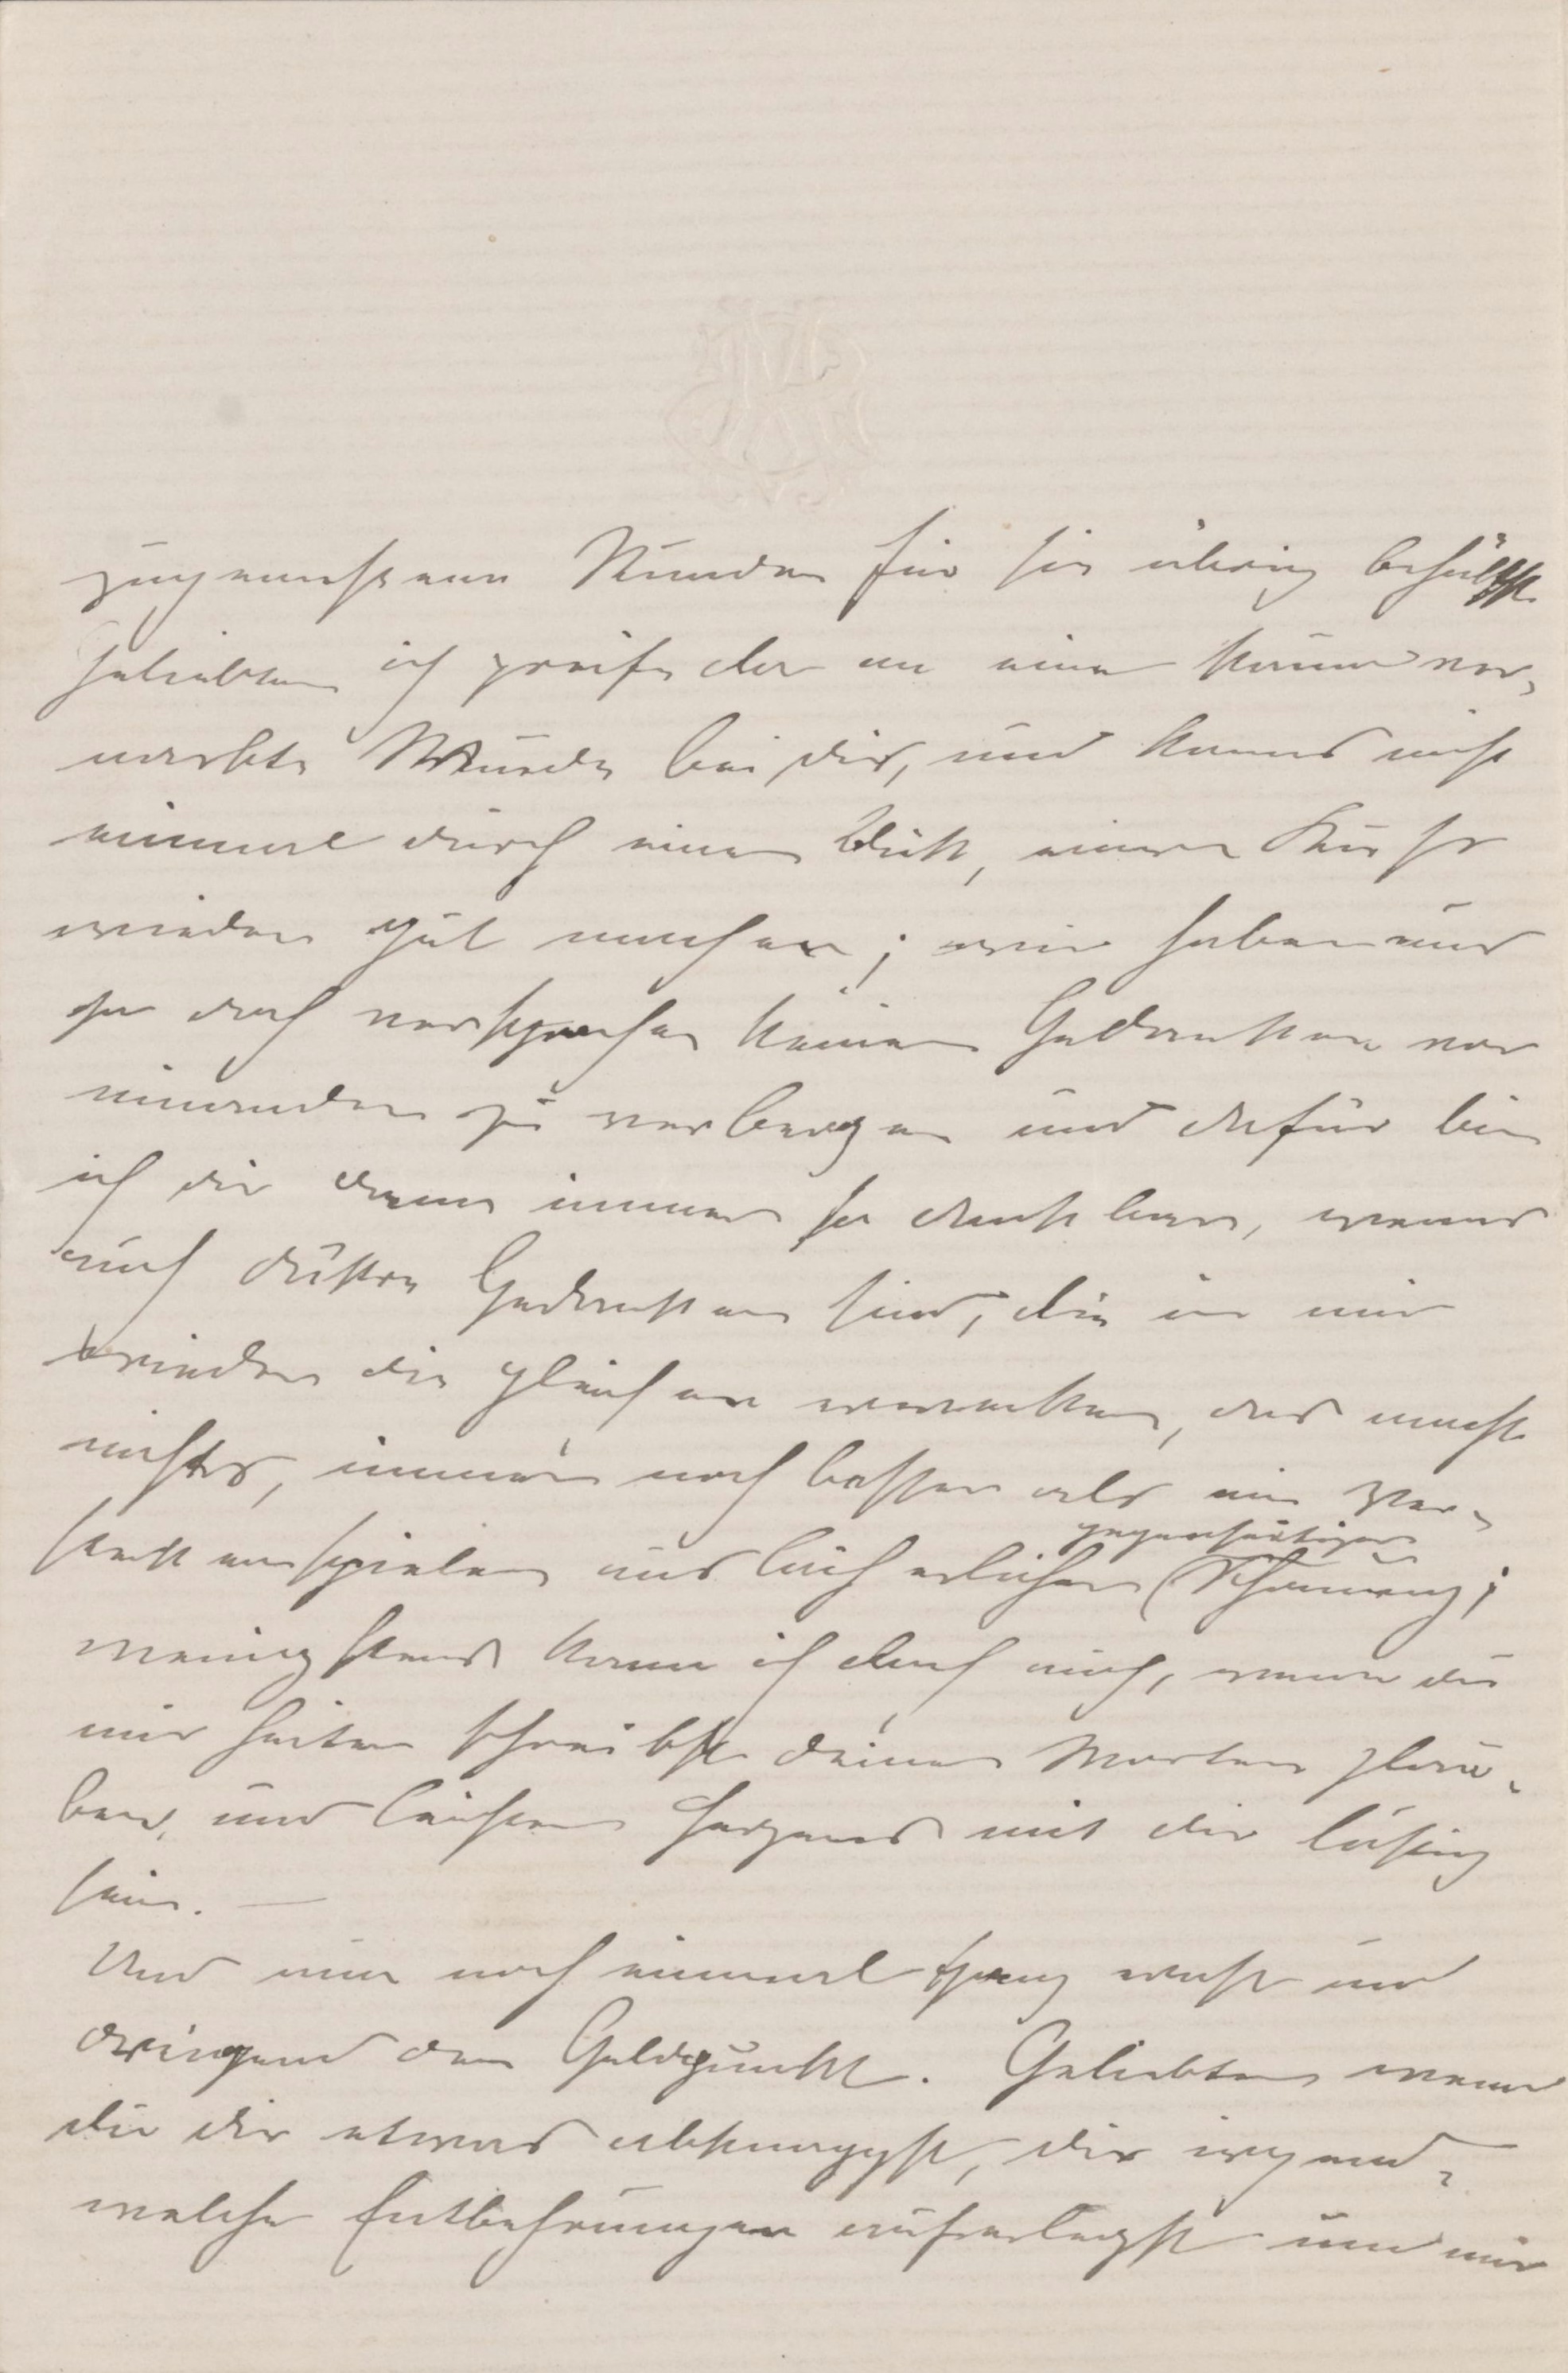 zugemessenen Stunden für sie übrig behältst
Geliebter ich greife da an eine kaum ver-
narbte Wunde bei dir, und kanns nicht
einmal durch einen Blick, einen Kuß
wieder gut machen; wir haben uns
ja doch versprochen keinen Gedanken vor
einander zu verbergen und dafür bin
ich dir denn immer so dankbar, wenns
auch düstre Gedanken sind, die in mir
wieder die gleichen erwecken, das macht
nichts, immer noch besser als ein Ver-
steckenspielen aus lächerlicher gegenseitiger Schonung;
wenigstens kann ich doch auch, wenn du
mir heiter schreibst deinen Worten glau-
ben, und leichten Herzens mit dir lustig
sein. —
Und nun noch einmal ganz ernst und
dringend den Geldpunkt. Geliebter wenn
du dir etwas abknappst, dir irgend-
welche Entbehrungen auferlegst um mir